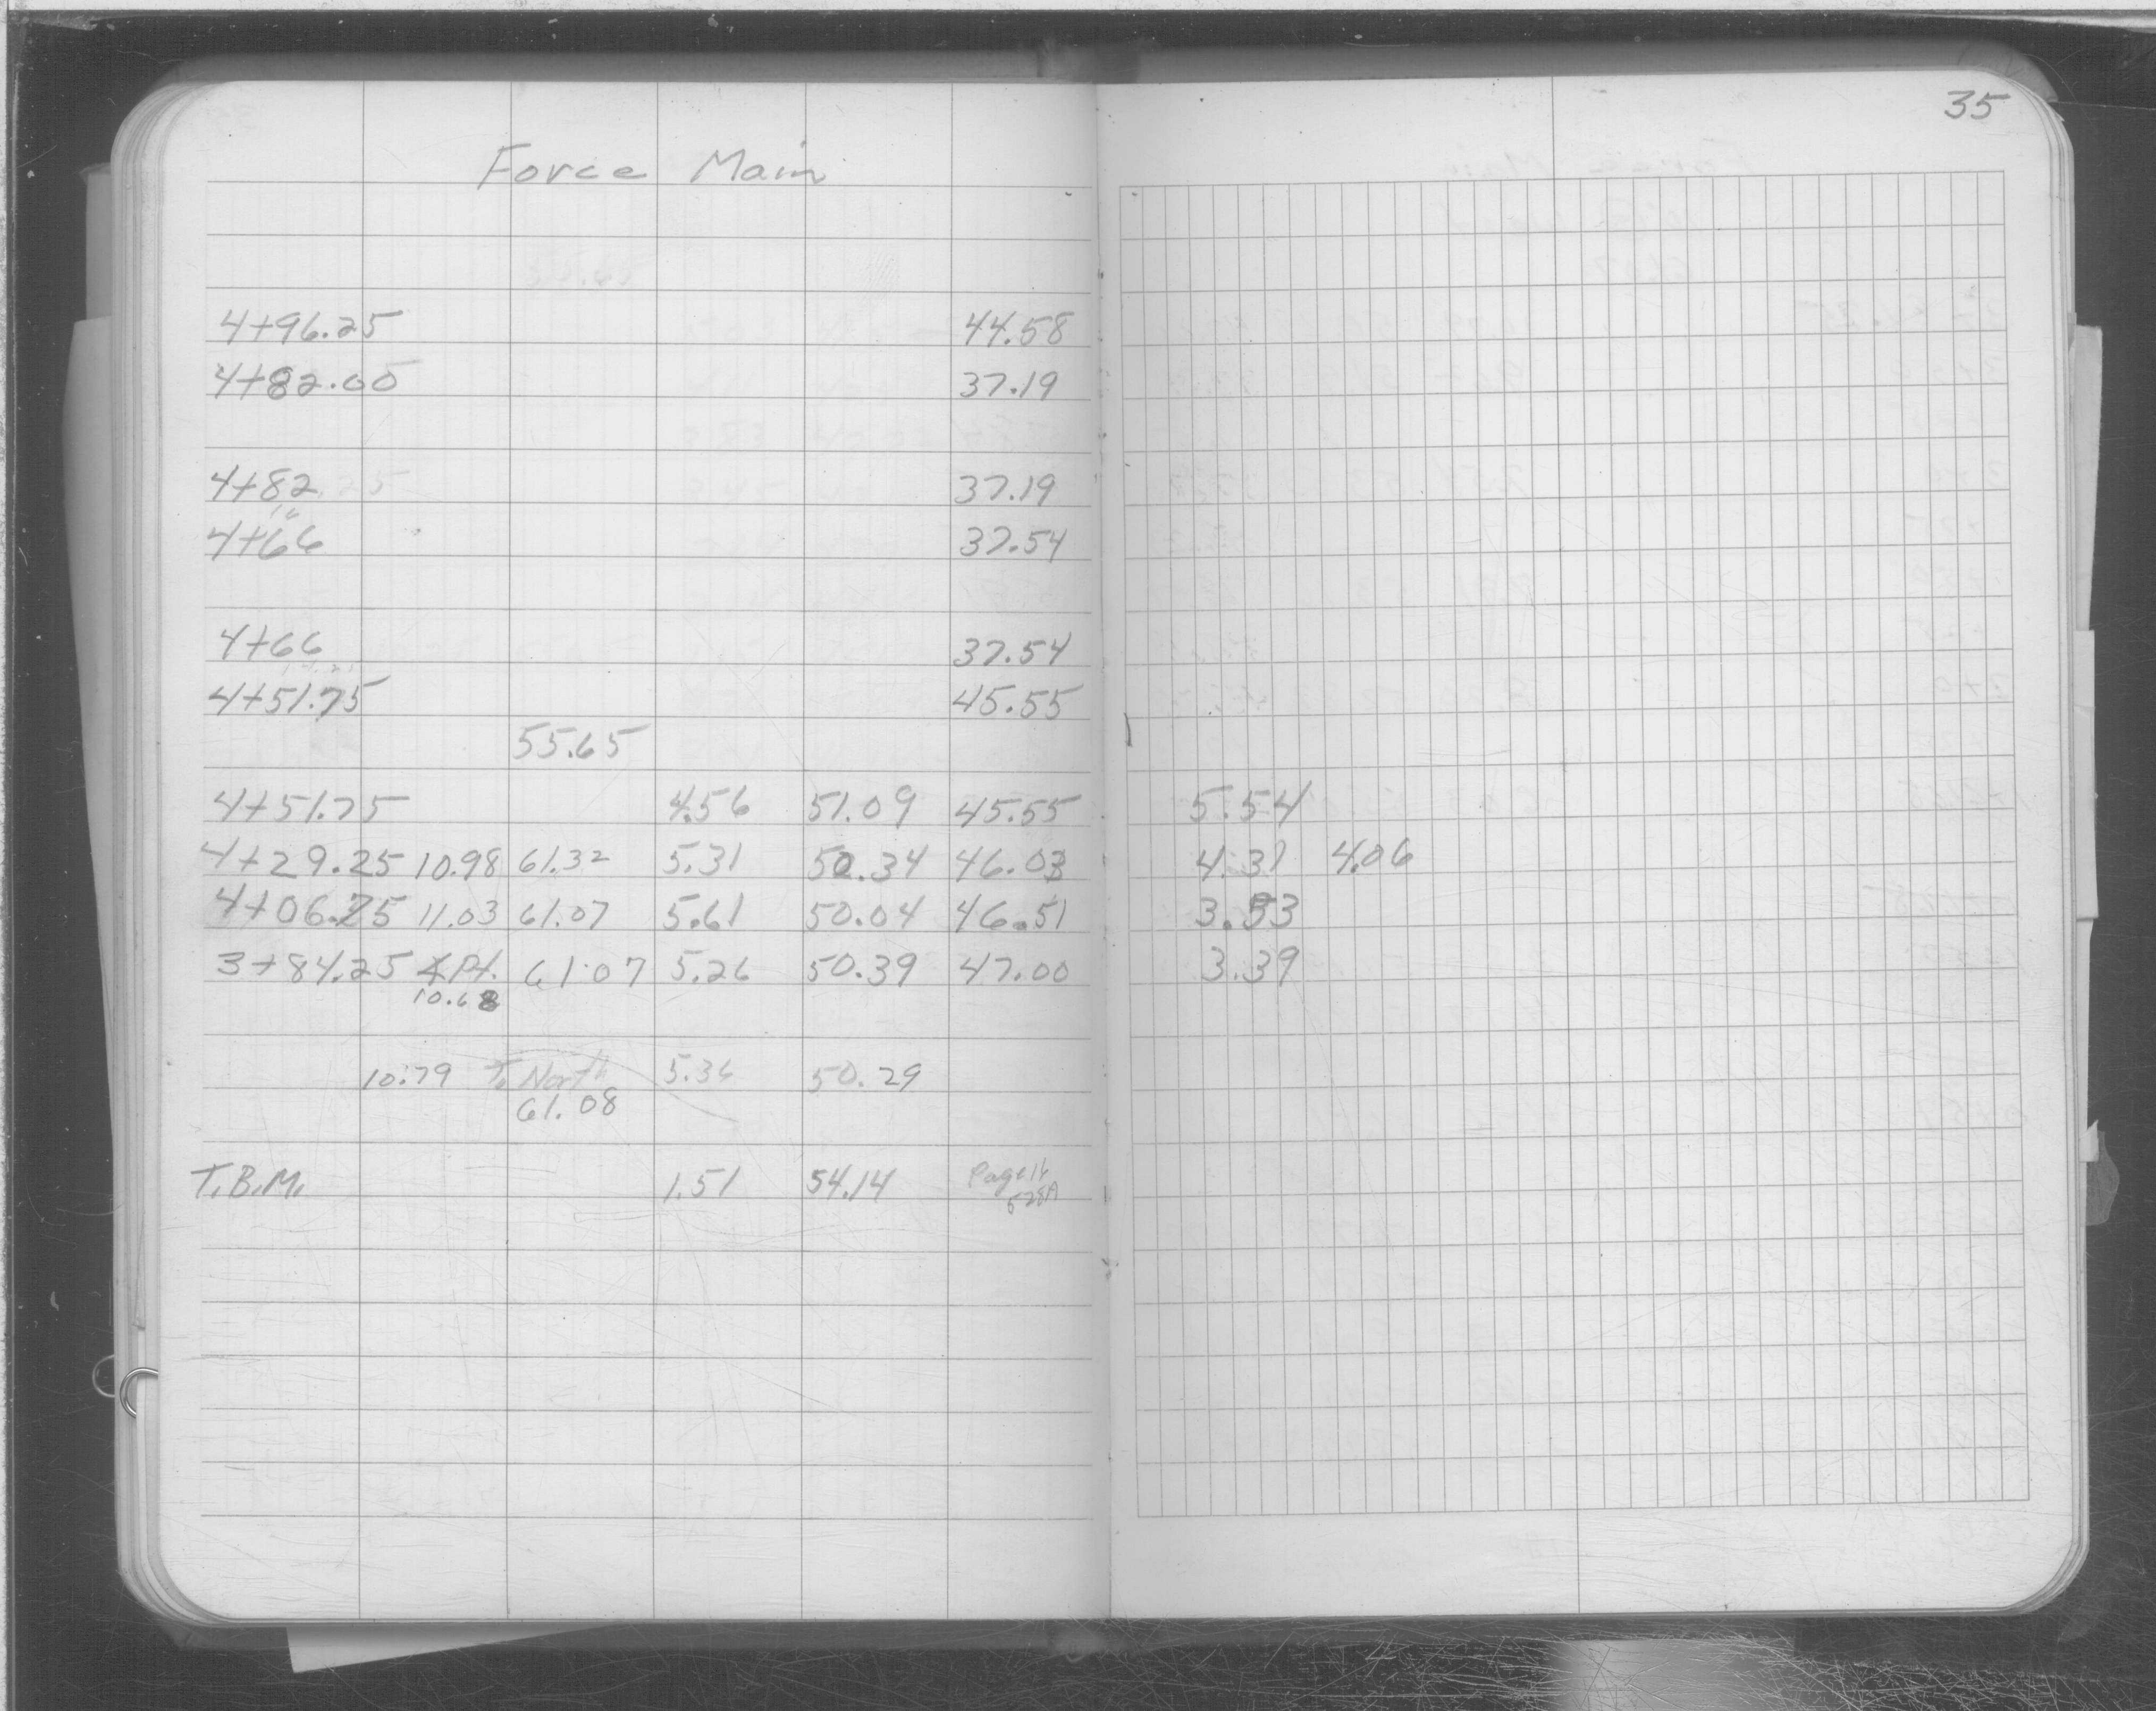 35
Force Main
4+96.25 44.58
4+82.00 37.19
4+82 37.19
4+66 37.54
4+66 37.54
4+51.75 45.55
55.65
4+51.75 4.56 51.09 45.55 5.54
4+29.25 10.98 61.32 5.31 50.34 46.03 4.31 4.06
4+06.75 11.03 61.07 5.61 50.04 46.51 3.53
3+84.25 ∠Pt. 61.07 5.26 50.39 47.00 3.39
10.68
10.79 T. North 5.36 50.29
61.08
T.B.M. 1.51 54.14 Page 14
528A